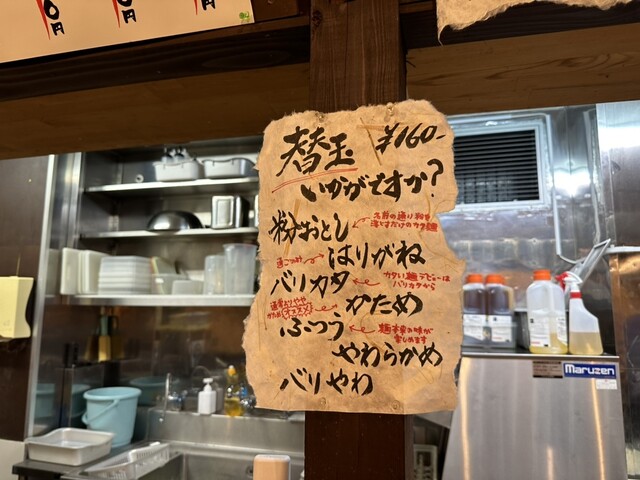 円
円
円
替玉 ¥160-
いかがですか?
粉おとし
名前の通り粉を
落とすだけのカタ麺
はりがね
バリカタ
カタい麺デビューは
バリカタから
かため
通常よりやや
かため オススメ
ふつう
麺本来の味が
楽しめます
やわらかめ
バリやわ
Maruzen